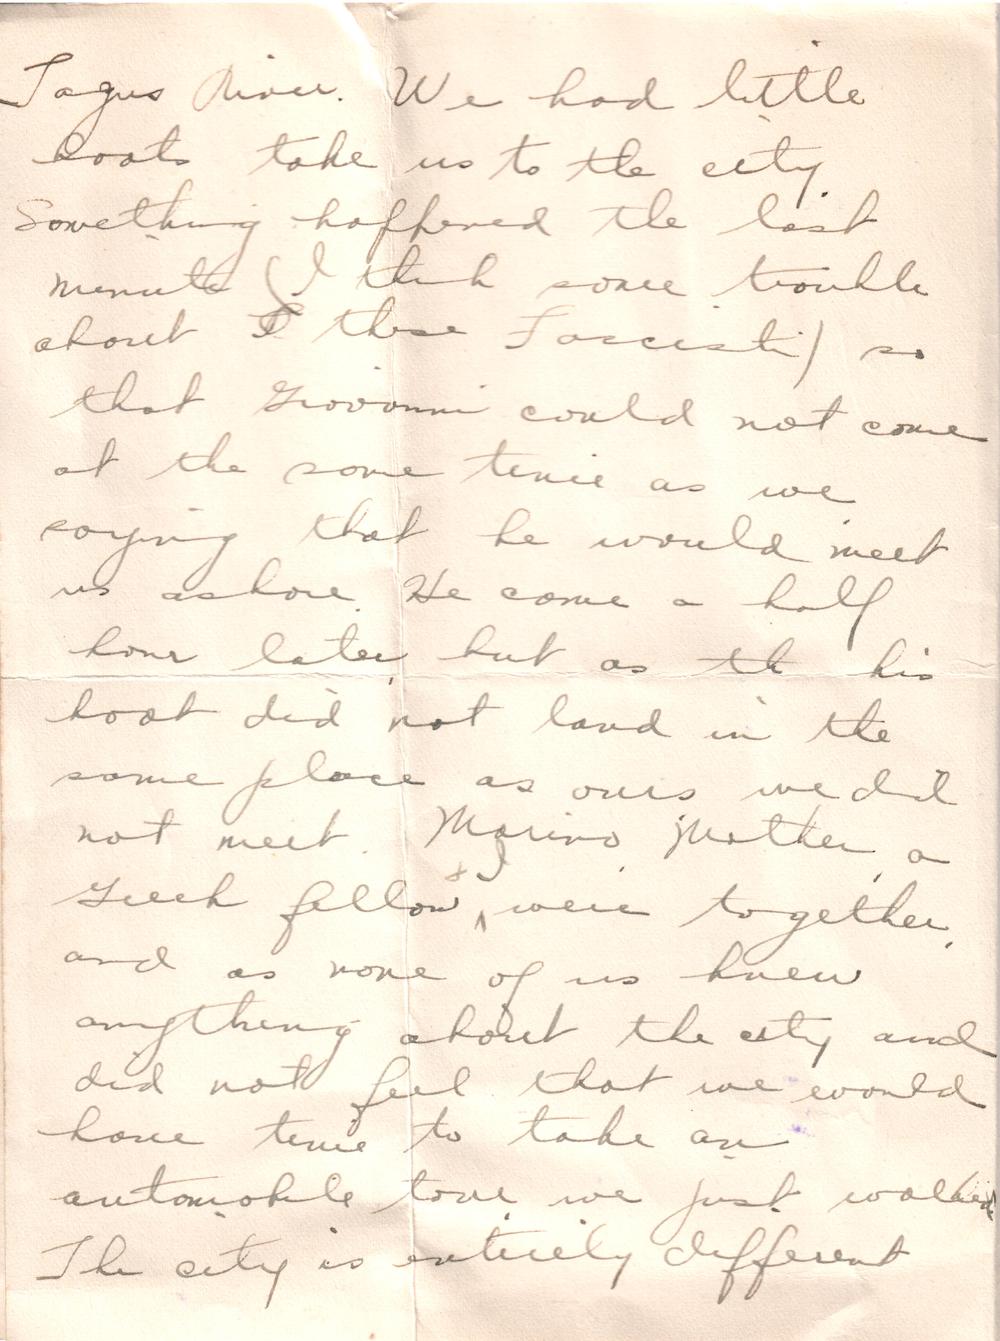 Tagus River. We had little
boats take us to the city
Something happened the last
minute (I think some trouble
about these Fascisti) so
that Giovanni could not come
at the same time as we
saying that he would meet
us ashore. He came a half
hour later but as th his
boat did not land in the
same place as ours we did
not meet. Marino, Mother, a
Greek fellow & I were together,
and as none of us knew
anything about the city and
did not feel that we would
have time to take an
automobile tour we just walked.
The city is entirely different